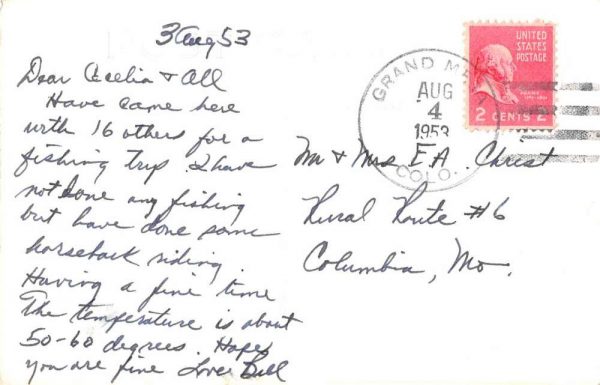 3 Aug 53
Dear Cecelia & All
Have came here
with 16 others for a
fishing trip. I have
not done any fishing
but have done some
horseback riding.
Having a fine time
The temperature is about
50-60 degrees. Hope
you are fine Love Bill
UNITED
STATES
POSTAGE
2 CENTS 2
GRAND MESA
AUG
4
1953
COLO.
Mr & Mrs E A. Christ
Rural Route #6
Columbia, Mo.